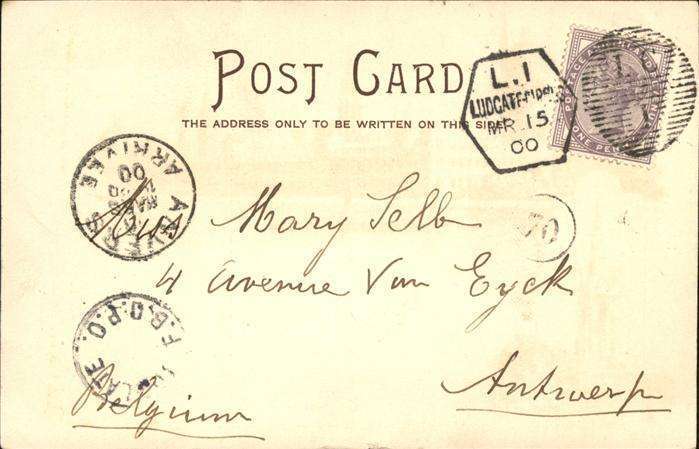 POST CARD
THE ADDRESS ONLY TO BE WRITTEN ON THIS SIDE.
L.1
LUDGATE-CIRCUS
MR 15
00
ONE PENNY
ANVERS
ARRIVEE
00
F.B.O.P.O.
LATE
Mary Selb
4 Avenue Van Eyck
Antwerp
Belgium